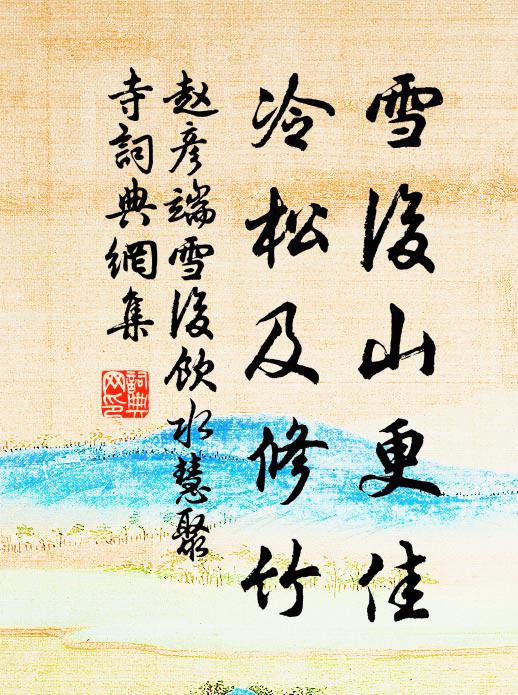 雪後山更佳
冷松及修竹
赵彦端雪後飲水慧聚
寺詞典網集
詞典网印